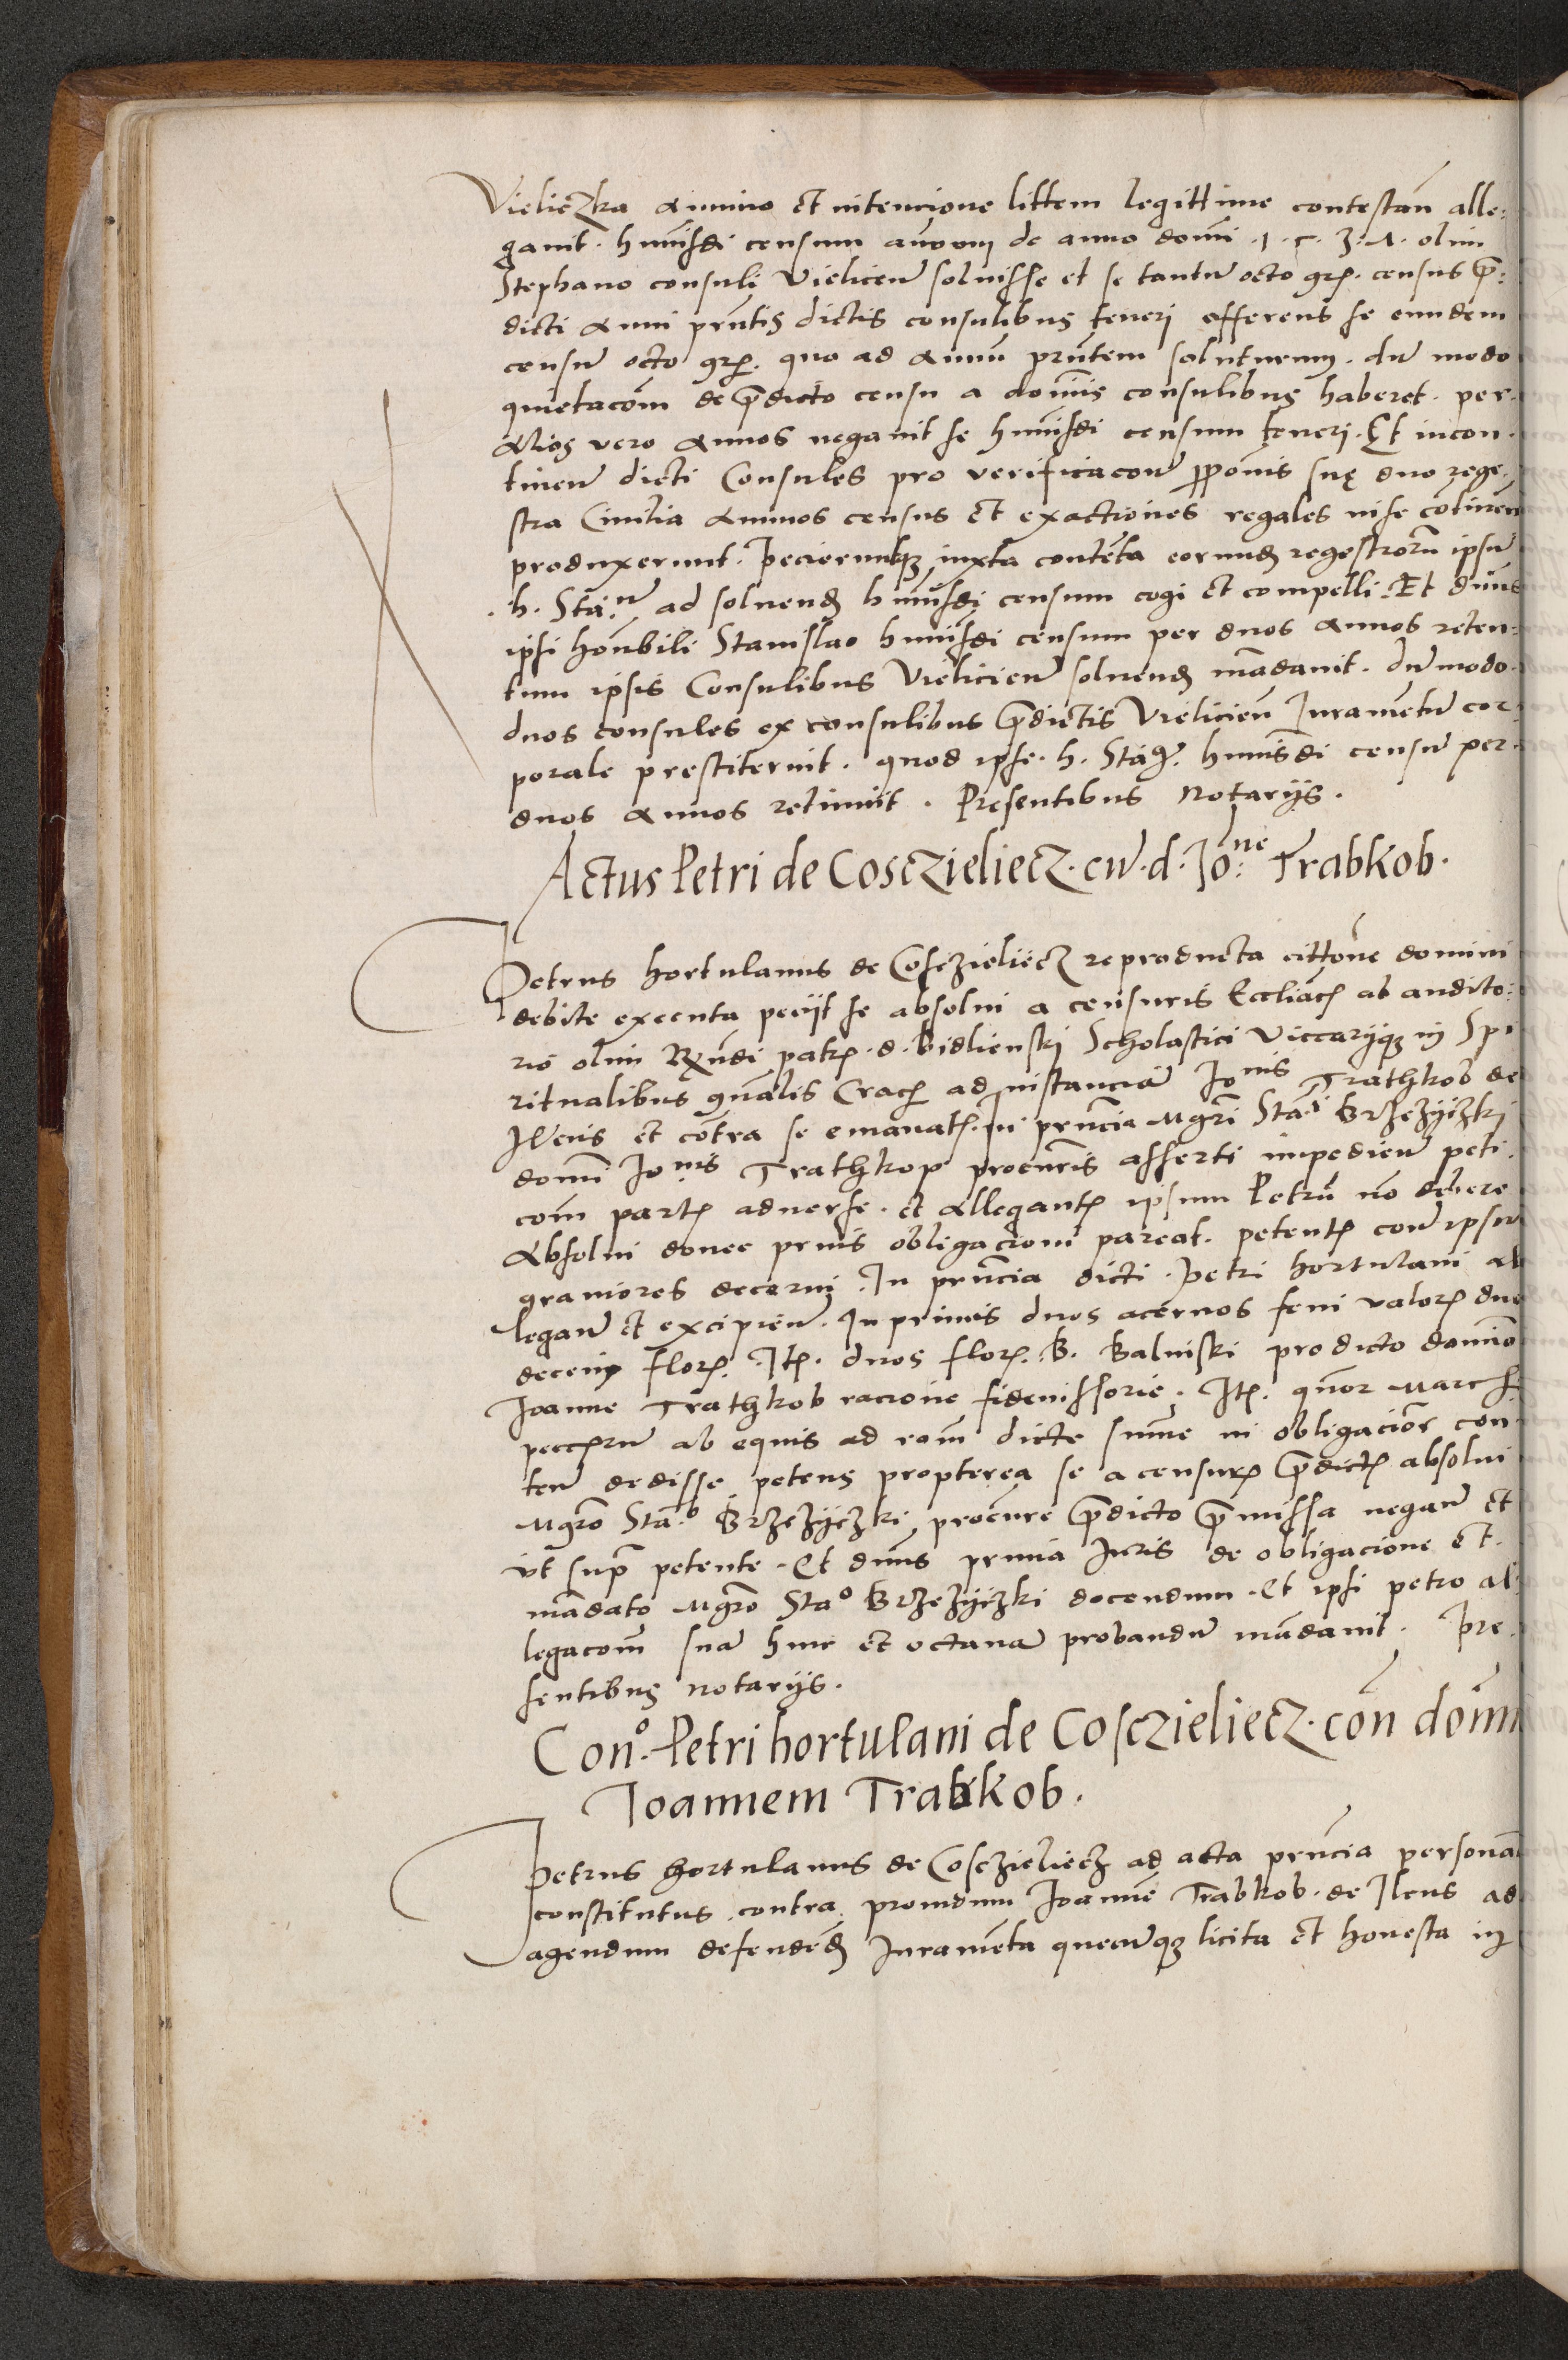 Vieliczka animo et intencione littem legittime contestan̄ alle-
gavit. huiusdi censum annom de anno domi .1.5.3.4. olim
Stephano consuli Vielicen̄ solvisse et se tantū octo gr. census p̄-
dicti anni pn̄tis dictis consulibus teneri offerens se eundem
censū octo gr. quo ad annū pn̄tem soluturum. dū modo
quietacōm de p̄dicto censu a dominis consulibus haberet. per
Alios vero annos negavit se huiusdi censum teneri. Et incon-
tinen̄ dicti Consules pro verificacōne ꝓpōnis suę duo rege-
stra Civilia annuos census et exactiones regales in se cōtinen̄
produxerunt. Pecieruntqꝫ iuxta contēta eorund regestrorū ipsū
.h. Sta.ū ad solvend huiusdi censum cogi et compelli. Et dn̄us
ipsi honbili Stanislao huiusdi censum per duos annos reten-
tum ipsis Consulibus Vielicien̄ solvend mādavit. dū modo
duos consules ex consulibus p̄dictis Vielicien̄ Juramentū cor-
porale prestiterint. quod ipse .h. Sta. huiusdi censū per
duos annos retinuit. Presentibus Notarijs.
Actus Petri de Cosczieliecz. cū. d. Jo.ne Trabkob.
Petrus hortulanus de Cosczieliecz reproducta cittōne domini
debite execuuta peciit se absolvi a censuris Eccliac ab audito-
rio olim Rn̄di patr. d. bidlienski Scholastici Viccarijqꝫ in Spi
ritualibus gn̄alis Crac ad instanciā Jo nis Trathkob de
Ilcus et cōtra se emanat. in pn̄cia Mgri Sta.i Brzezyczki
domi Jo.nis Trathkop procuris asserti impedien̄ peti-
cōm part adverse. et allegant ipsum Petrū nō debere
Absolvi donec prius obligacioni pareat. petent con̄ ipsū
graviores decerni. In pn̄cia dicti. Petri hortulani al
legan̄ et excipien̄. In primis duos acervos feni valor duo
decem flor. It. duos flor. B. Balinski pro dicto domino
Joanne Trathkob racione fideiussorie. It. quor Marc
ab equis ad rom dicte summe in obligacōe con
ten̄ dedisse petens propterea se a censur p̄dict absolvi
Mgro Sta.o Brzezyczki procure p̄dicto p̄missa negan̄ et
ut supr petente. Et dn̄us Juris de obligacione et
mādato Mgro Sta.o Brzezyczki docendum. Et ipsi petro al
legacom suā hinc et octavā probandū mādavit. Pre-
sentibus Notarijs.
Con.o Petri hortulani de Cosczieliecz. con domn
Joannem Trabkob.
Petrus hortulanus de Cosczieliecz ad acta pn̄cia personā
constitutus contra providum Joannē Trabkob de Ilcus ad
agendum defendēd Juramēta quecūqꝫ licita et honesta in